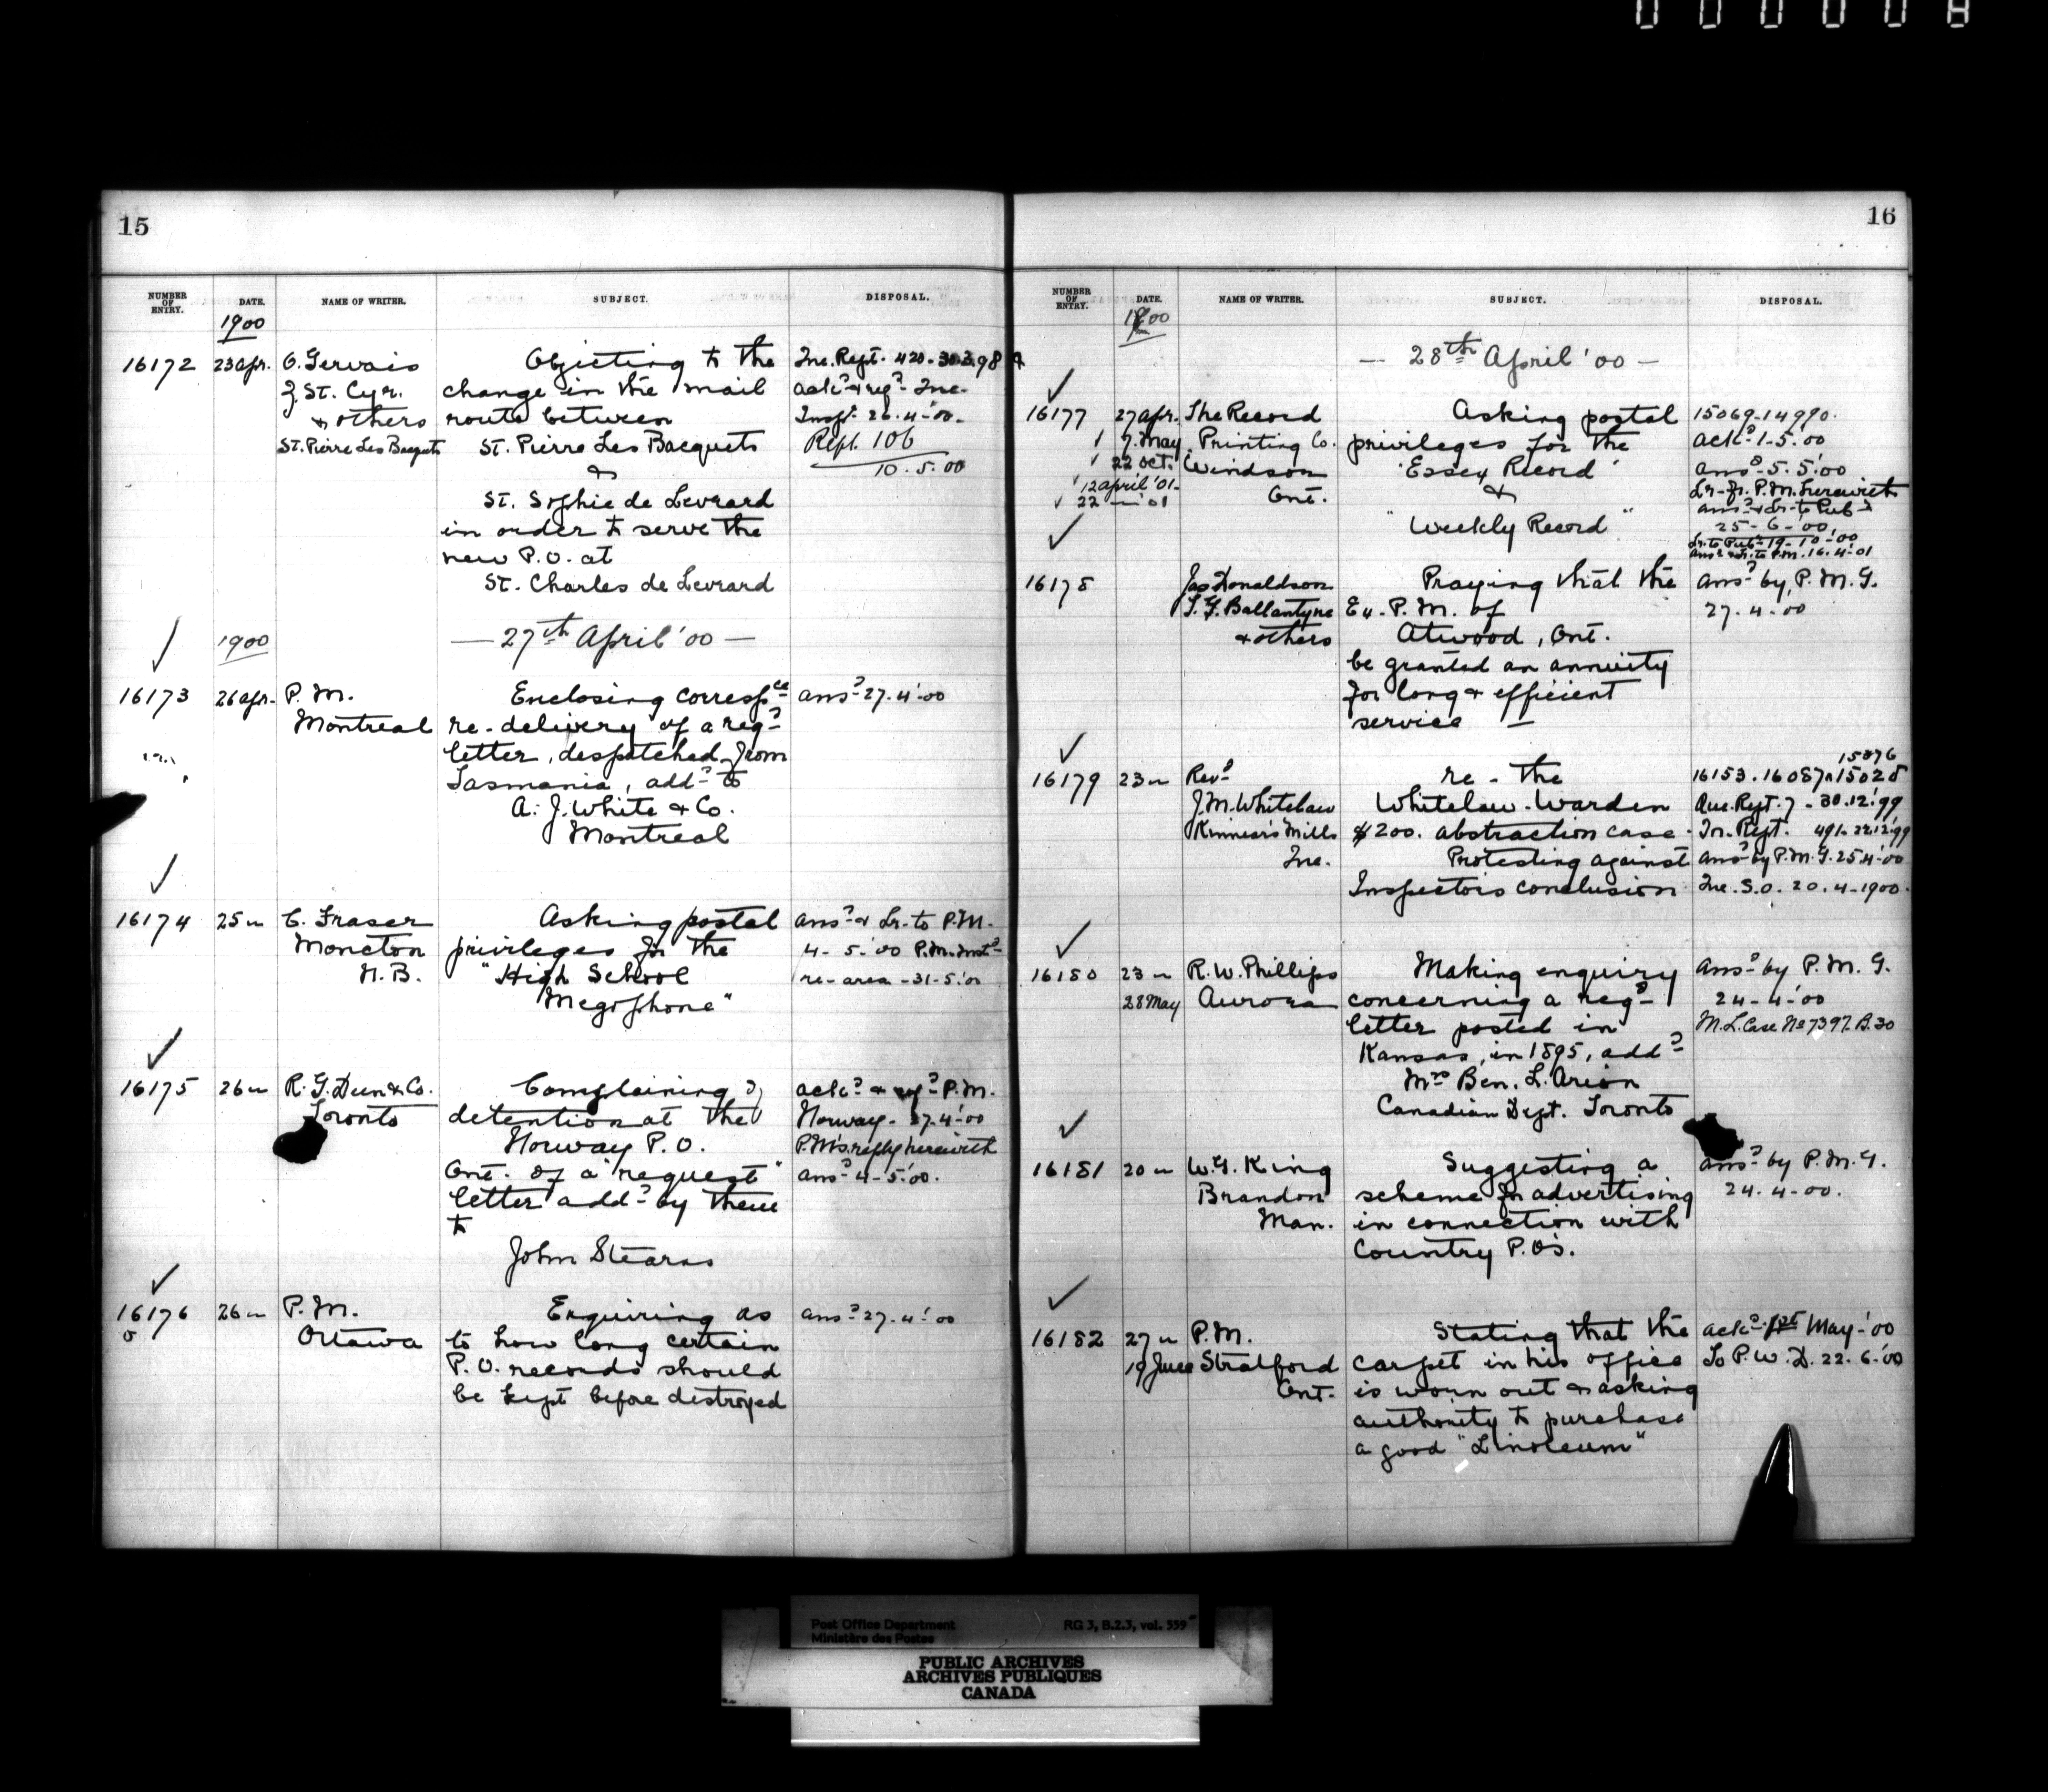 000008
15
NUMBER OF ENTRY. DATE. NAME OF WRITER. SUBJECT. DISPOSAL.
1900
16172 23 Apr. O. Gervais Objecting to the
J. St. Cyr. change in the mail ack.d & req.d
& others route between Insp.r 26.4.'00.
St. Pierre Les Becquets St. Pierre Les Becquets Rept. 106
& 10.5.00
St. Sophie de Levrard
in order to serve the
new P.O. at
St. Charles de Levrard
1900 — 27th April '00 —
16173 26 Apr. P.M. Enclosing corresp.ce ans.d 27.4.'00
Montreal re-delivery of a reg.d
letter, despatched from
Tasmania, add.d to
A. J. White & Co.
Montreal
16174 25 " C. Fraser Asking postal ans.d & Lr. to P.M.
Moncton privileges for the 4-5.'00 P.M.
N.B. "High School re-area-31-5.'00
Megophone"
16175 26 " R. G. Dun & Co. Complaining of ack.d & req.d P.M.
Toronto detention at the Norway. 27.4.'00
Norway P.O. P.M's. reply herewith
Ont. of a "request" ans.d 4-5.'00.
letter add.d by them
to
John Stearns
16176 26 " P.M. Enquiring as ans.d 27.4.'00
Ottawa to how long certain
P.O. records should
be kept before destroyed
16
NUMBER OF ENTRY. DATE. NAME OF WRITER. SUBJECT. DISPOSAL.
1900
— 28th April '00 —
16177 27 Apr. The Record Asking postal 15069-14990.
7. May Printing Co. privileges for the ack.d 1-5.'00
22 Oct. Windson "Essex Record" ans.d 5.5.'00
12 April '01. Ont. & Lr. fr. P.M. herewith
22 — '01 "Weekly Record" ans.d & Lr. to Pub.r
25-6-'00.
Lr. to Pub.r 19-10-'00
ans.d & Lr. to P.M. 16.4.'01
16178 Jas Donaldson Praying that the ans.d by P.M.G.
T. G. Ballantyne Ex. P.M. of 27.4.00
& others Atwood, Ont.
be granted an annuity
for long & efficient
service —
15876
16179 23 " Rev.d re- the 16153. 16087 & 15028
J. M. Whitelaw Whitelaw-Warden Que. Rept. 7-30.12.'99
Kinnear's Mills $200. abstraction case. Tor. Rept. 491-22.12.'99
Protesting against ans.d by P.M.G. 25.4.'00
Inspectors conclusion S.O. 20.4.1900.
16180 23 " R. W. Phillips Making enquiry ans.d by P.M.G.
28 May Aurora concerning a reg.d 24-4-'00
letter posted in M.L. Case No 7397. B.30
Kansas, in 1895, add.d
Mrs Ben. L. Arion
Canadian Dept. Toronto
16181 20 " W. G. King Suggesting a ans.d by P.M.G.
Brandon scheme for advertising 24.4.00.
Man. in connection with
Country P.O's.
16182 27 " P.M. Stating that the ack.d 1st May '00
19 June Stratford carpet in his office To P.W.D. 22.6.'00
Ont. is worn out & asking
authority to purchase
a good "Linoleum"
Post Office Department RG 3, B.2.3, vol. 559
Ministère des Postes
PUBLIC ARCHIVES
ARCHIVES PUBLIQUES
CANADA